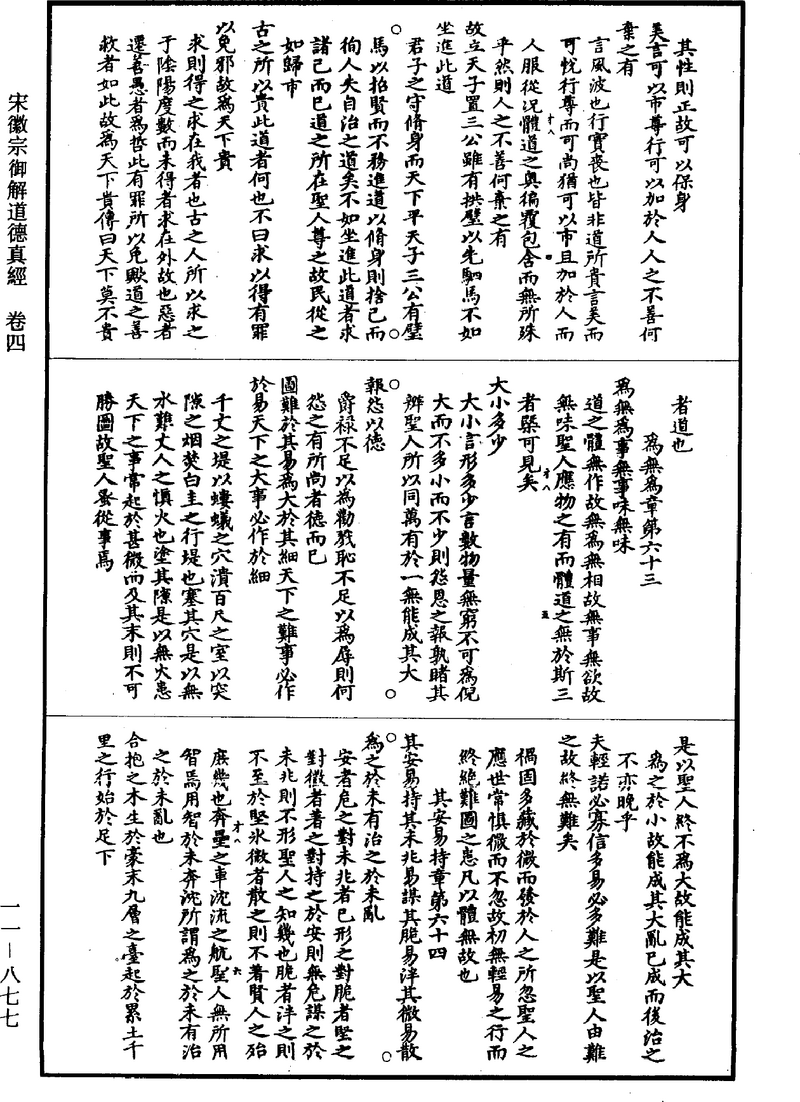 宋徽宗御解道德真經　卷四
其性則正故可以保身
美言可以市尊行可以加於人人之不善何
棄之有
言風波也行實喪也皆非道所貴言美而
可悅行尊而可尚猶可以市且加於人而
人服從況體道之奧徧覆包含而無所殊
乎然則人之不善何棄之有
故立天子置三公雖有拱璧以先駟馬不如
坐進此道
君子之守脩身而天下平天子三公有璧
馬以招賢而不務進道以脩身則捨己而
徇人失自治之道矣不如坐進此道者求
諸己而已道之所在聖人尊之故民從之
如歸市
古之所以貴此道者何也不曰求以得有罪
以免邪故為天下貴
求則得之求在我者也古之人所以求之
于陰陽度數而未得者求在外故也惡者
遷善愚者為哲此有罪所以免歟道之善
救者如此故為天下貴傳曰天下莫不貴
者道也
為無為章第六十三
為無為事無事味無味
道之體無作故無為無相故無事無欲故
無味聖人應物之有而體道之無於斯三
者槩可見矣
大小多少
大小言形多少言數物量無窮不可為倪
大而不多小而不少則怨恩之報孰睹其
辨聖人所以同萬有於一無能成其大
報怨以德
爵祿不足以為勸戮恥不足以為辱則何
怨之有所尚者德而已
圖難於其易為大於其細天下之難事必作
於易天下之大事必作於細
千丈之堤以螻蟻之穴潰百尺之室以突
隙之烟焚白圭之行堤也塞其穴是以無
水難丈人之慎火也塗其隙是以無火患
天下之事常起於甚微而及其末則不可
勝圖故聖人蚤從事焉
是以聖人終不為大故能成其大
為之於小故能成其大亂已成而後治之
不亦晚乎
夫輕諾必寡信多易必多難是以聖人由難
之故終無難矣
禍固多藏於微而發於人之所忽聖人之
應世常慎微而不忽故初無輕易之行而
終絕難圖之患凡以體無故也
其安易持章第六十四
其安易持其未兆易謀其脆易泮其微易散
為之於未有治之於未亂
安者危之對未兆者已形之對脆者堅之
對微者著之對持之於安則無危謀之於
未兆則不形聖人之知幾也脆者泮之則
不至於堅氷微者散之則不著賢人之殆
庶幾也奔壘之車沈流之航聖人無所用
智焉用智於未奔沈所謂為之於未有治
之於未亂也
合抱之木生於毫末九層之臺起於累土千
里之行始於足下
一一—八七七